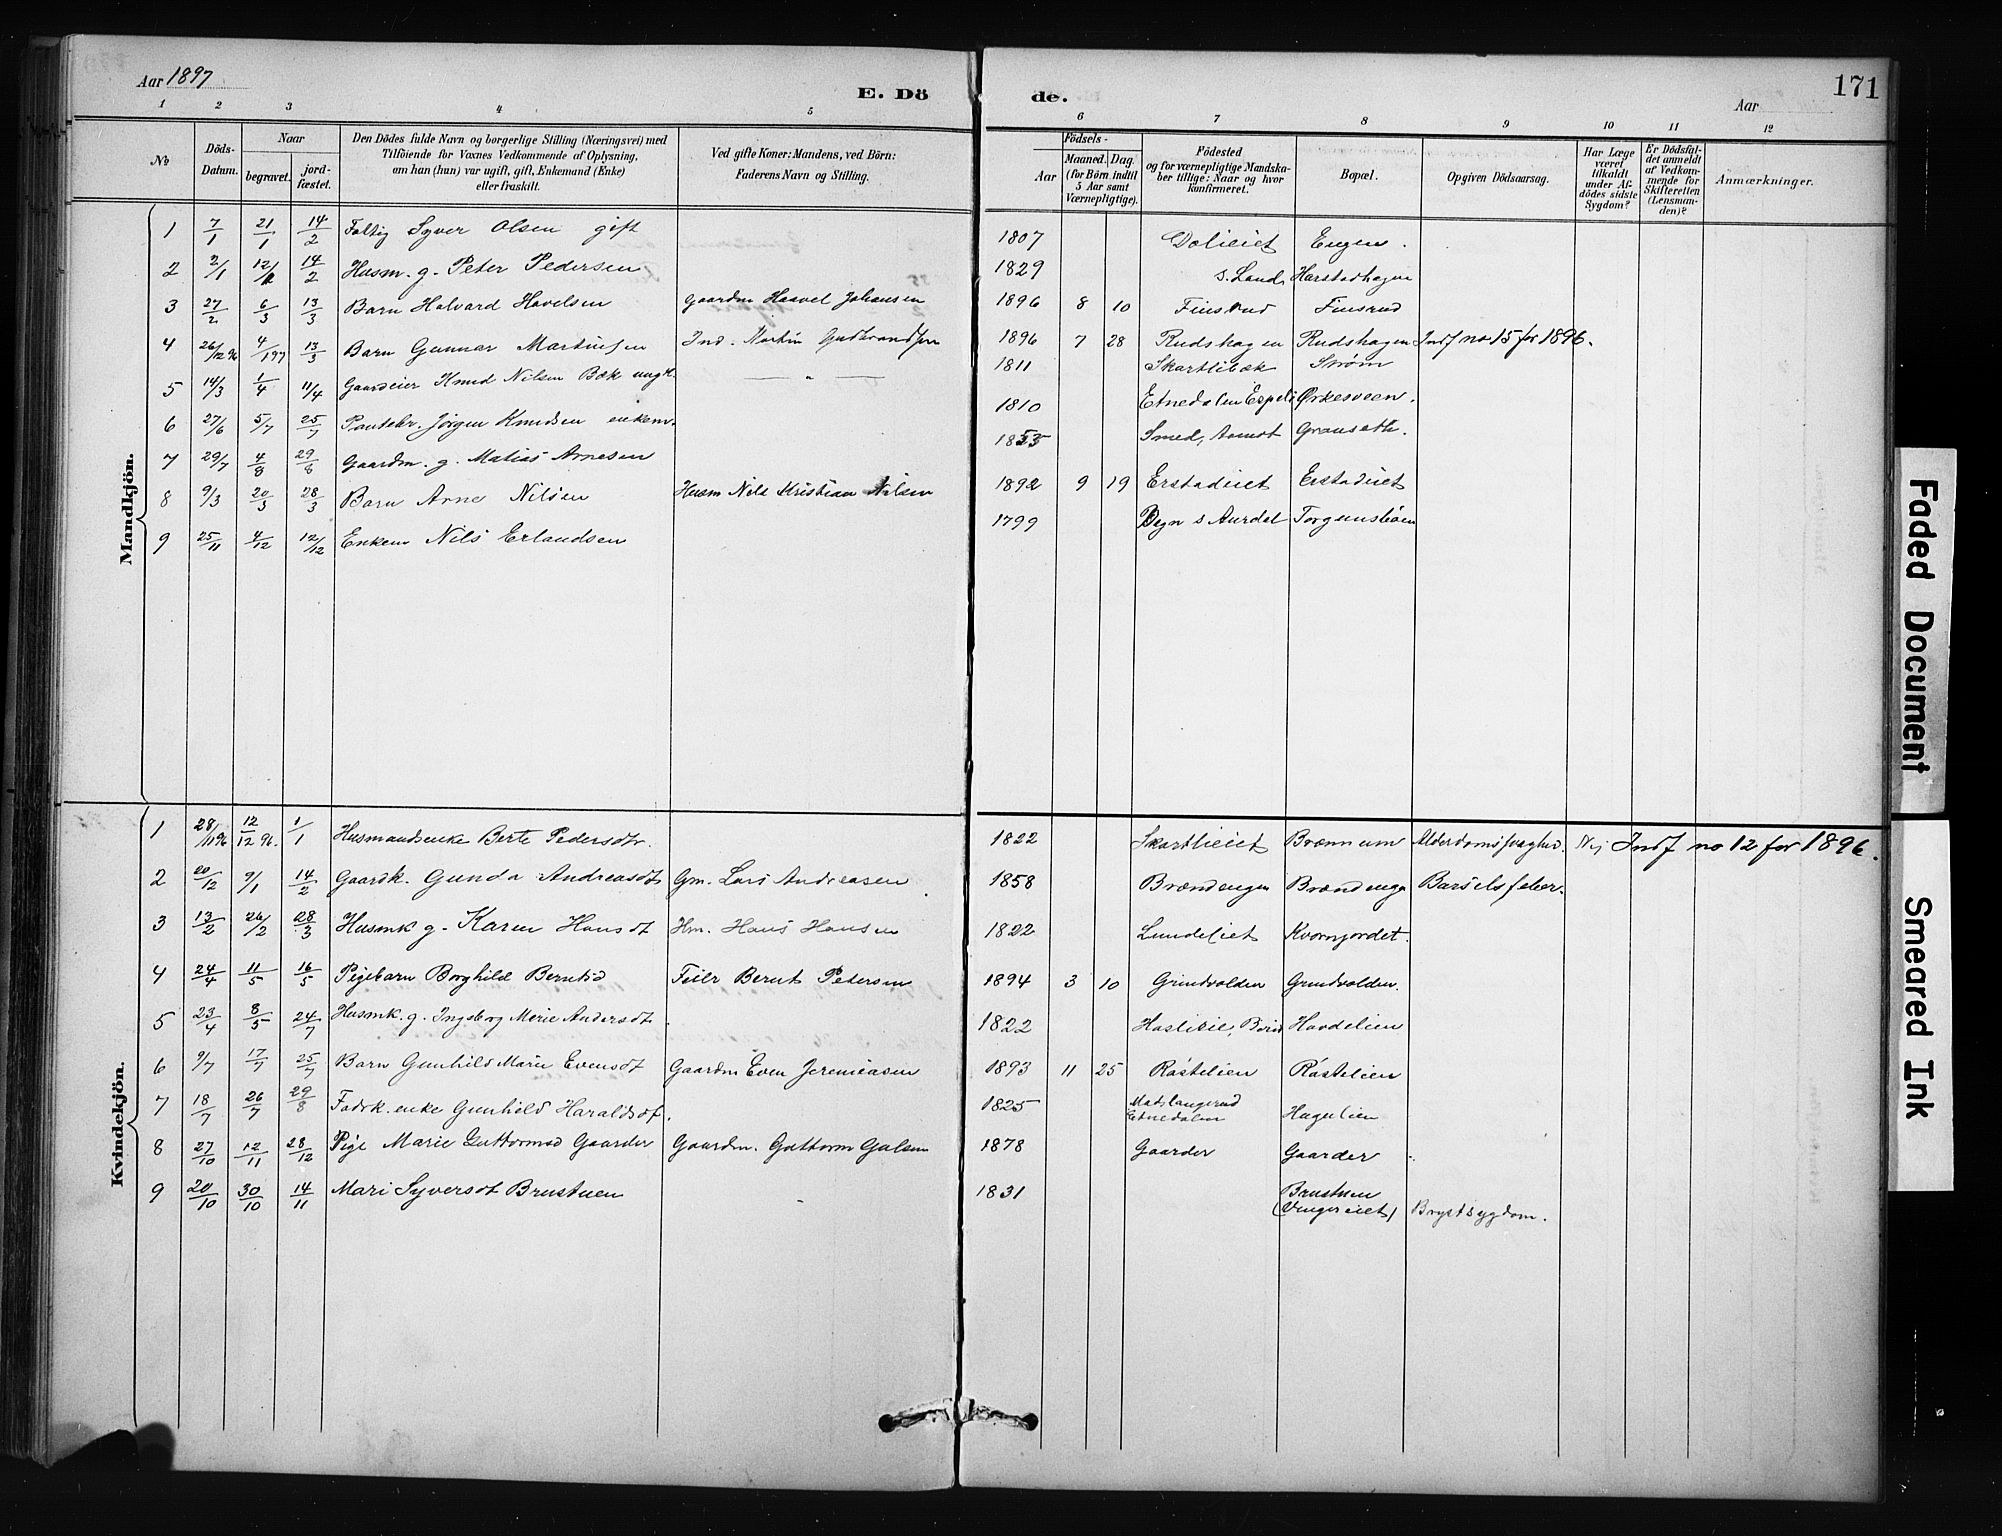 Aar 1897
E. Dö de.
Aar
171
1 2 3 4 5 6 7 8 9 10 11 12
No
Döds-Datum.
Naar
begravet. jord-fæstet.
Den Dödes fulde Navn og borgerlige Stilling (Næringsvei) med
Tilföiende for Voxnes Vedkommende af Oplysning,
om han (hun) var ugift, gift, Enkemand (Enke)
eller fraskilt.
Ved gifte Koner: Mandens, ved Börn:
Faderens Navn og Stilling.
Födsels-
Aar
Maaned. Dag.
(for Börn indtil
5 Aar samt
Værnepligtige).
Födested
og for værnepligtige Mandska-
ber tillige: Naar og hvor
konfirmeret.
Bopæl.
Opgiven Dödsaarsag.
Har Læge
været
tilkaldt
under Af-
dödes sidste
Sygdom?
Er Dödsfal-
det anmeldt
af Vedkom-
mende for
Skifteretten
(Lensman-
den)?
Anmærkninger.
Mandkjön.
1 7/1 21/1 14/2 Faltig Syver Olsen gift 1807 Dølieiet Engen.
2 2/1 12/1 14/2 Husm. g. Peter Pedersen 1829 S. Land Harstadhagen
3 27/2 6/3 13/3 Barn Halvard Hovelsen gaardm Haavel Johansen 1896 8 10 Finsrud Finsrud
4 26/12 96 4/1 97 13/3 Barn Gunnar Martinsen Ind. Martin Gudbrandsen 1896 7 28 Rudshagen Rudshagen Indf no 15 for 1896.
5 14/3 1/4 11/4 Gaardeier Knud Nilsen Bæk ungk. — " — 1811 Skartlibæk Strøm
6 27/6 5/7 25/7 Jørgen Knudsen enkem. 1810 Etnedalen Espeli Ørkesveen.
7 29/7 4/8 29/8 Gaardm. g. Matias Arnesen 1853 Smed, Granseth.
8 9/3 20/3 28/3 Barn Arne Nilsen Husm Nils Kristian Nilsen 1892 9 19 Erstadeiet Erstadeiet
9 25/11 4/12 12/12 Enkem Nils Erlandsen 1799 Begn S Aurdal
Kvindekjön.
1 28/11 96 12/12 96. 1/1 Husmandsenke Berte Pedersdtr. 1822 Skartlieiet Brænnum Alderdomssvaghed. Nej Indf no 12 for 1896.
2 20/12 9/1 14/2 Gaardk. Gunda Andreasdt Gm. Lars Andreasen 1858 Brændengen Brændengen Barselsfeber.
3 13/2 26/2 28/3 Husmk g. Karen Hansdt Hm. Hans Hansen 1822 Lundeliet Kvernjordet.
4 24/4 11/5 16/5 Pigebarn Borghild Berntsd Bernt Petersen 1894 3 10 Grindvolden Grindvolden.
5 23/4 8/5 24/7 Husmk. g. Ingeborg Marie Andersdt. 1822 Haslieie, Havdelien
6 9/7 17/7 25/7 Barn Gunhild Marie Evensdt Gaardm Even Jeremiasen 1893 11 25 Røstelien Røstelien
7 18/7 26/7 29/8 Fadrk. enke Gunhild Haraldsdt. 1825 Madslangerud
Etnedalen Hagelien
8 27/10 12/11 28/12 Pige Marie Guttormsd Gaarder Gaardm. Guttorm Gulsen 1878 Gaarder Gaarder
9 20/10 30/10 14/11 Mari Syversdt Brustuen 1831 Brustuen
(Vengereiet) Brystsygdom.
Faded Document
Smeared Ink